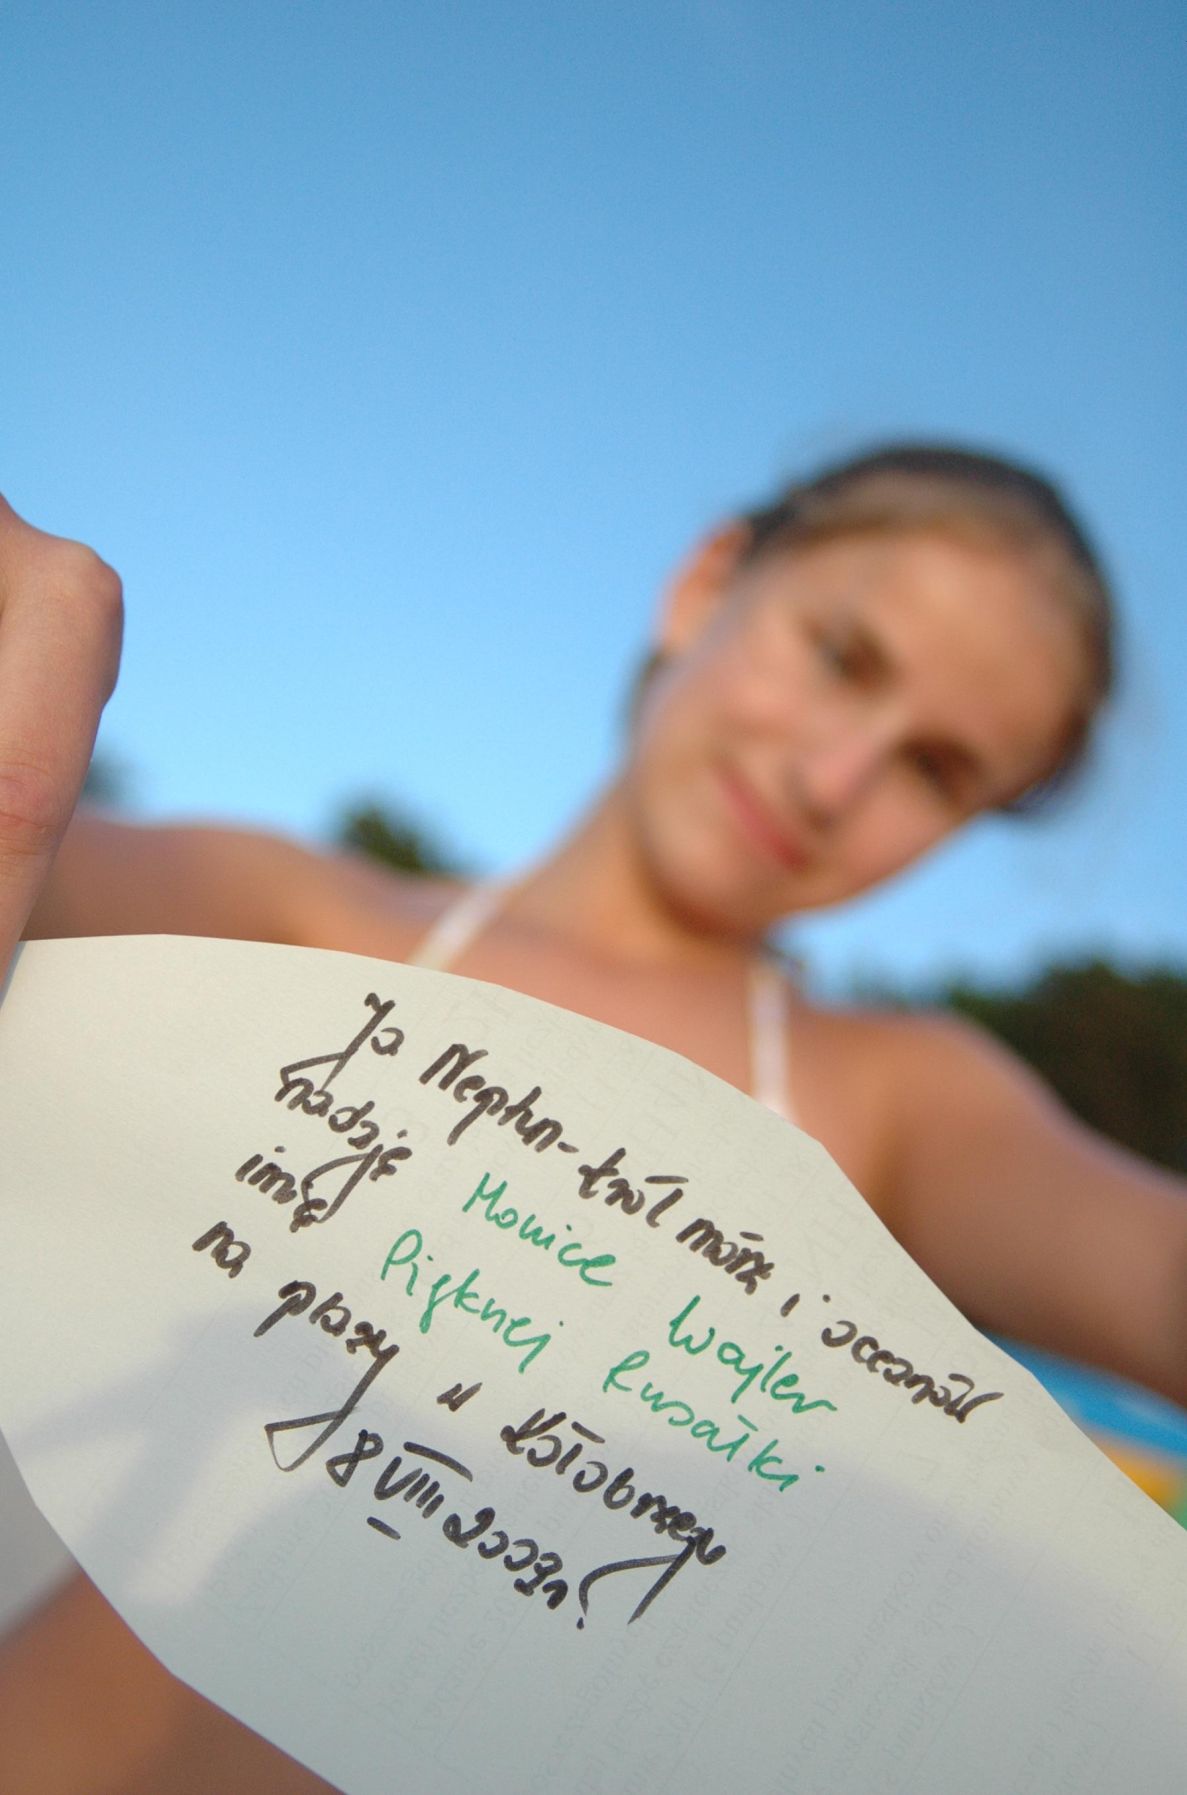 Ja Neptun - król mórz i oceanów
nadaję Monice Wajler
imię Pięknej Rusałki
na plaży w Kołobrzegu
8 VIII 2009r.